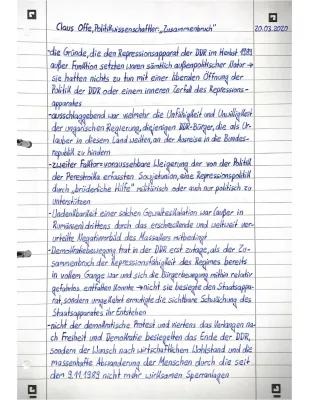 Claus Offe, Politikwissenschaftler: „Zusammenbruch" 20.03.2020
-die Gründe, die den Repressionsapparat der DDR im Herbst 1989
außer Funktion setzten waren sämtlich außenpolitischer Natur →
sie hatten nichts zu tun mit einer liberalen Öffnung der
Politik der DDR oder einem inneren Zerfall des Repressions-
apparates
-ausschlaggebend war vielmehr die Unfähigkeit und Unwilligkeit
der ungarischen Regierung, diejenigen DDR-Bürger, die als Ur-
lauber in diesem Land weilten, an der Ausreise in die Bundes-
republik zu hindern
-zweiter Faktor: voraussehbare Weigerung der von der Politik
der Perestroika erfassten Sowjetunion, eine Repressionspolitik
durch „brüderliche Hilfe" militärisch oder auch nur politisch zu
unterstützen
-Undenkbarkeit einer solchen Gewalteskalation war (außer in
Rumänien) drittens durch das erschreckende und weltweit ver-
urteilte Negativvorbild des Massakers mitbedingt
-Demokratiebewegung trat in der DDR erst zutage, als der Zu-
sammenbruch der Repressionsfähigkeit des Regimes bereits
in vollem Gange war und sich die Bürgerbewegung mithin relativ
gefahrlos entfalten konnte → nicht sie besiegte den Staatsappa-
rat, sondern umgekehrt ermutigte die sichtbare Schwächung des
Staatsapparates ihr Entstehen
-nicht der demokratische Protest und viertens das Verlangen na-
ch Freiheit und Demokratie besiegelten das Ende der DDR,
sondern der Wunsch nach wirtschaftlichem Wohlstand und die
massenhafte Abwanderung der Menschen durch die seit
dem 9.11.1989 nicht mehr wirksamen Sperranlagen